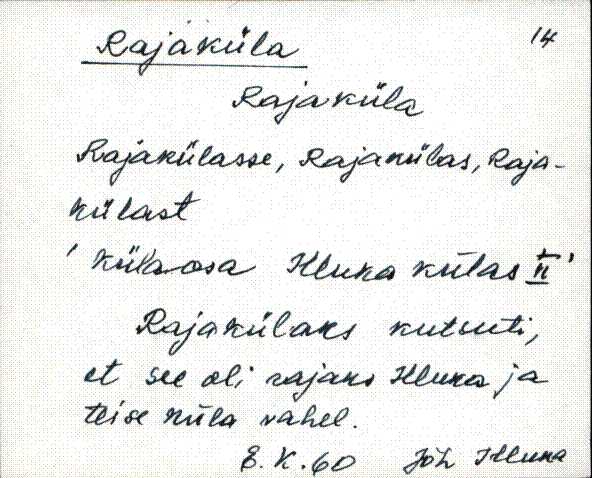 Rajaküla 14
Rajaküla
Rajakülasse, Rajakülas, Raja-
külast
' külaosa Illuka külas II '
Rajakülaks kutsuti,
et see oli rajaks Illuka ja
teise küla vahel.
E. K. 60 Jõh Illuka